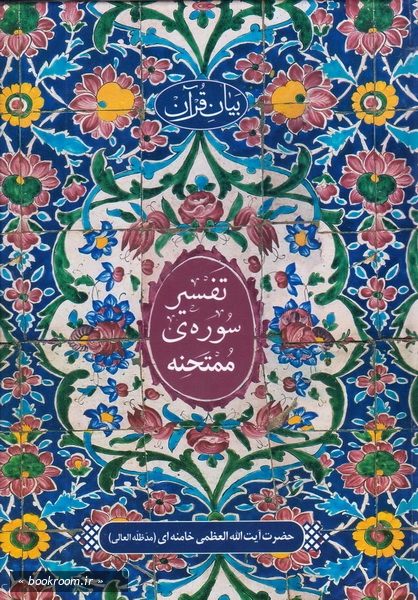 بیان قرآن
تفسیر
سوره‌ی
مُمتحنه
حضرت آیت الله العظمی خامنه ای (مدظله العالی)
« bookroom.ir »